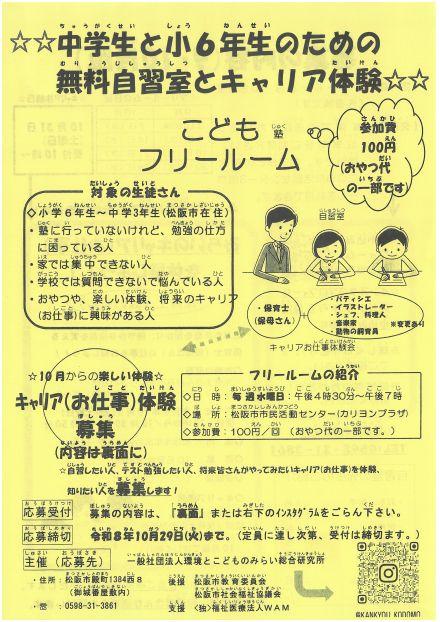 ☆☆中学生と小6年生のための
無料自習室とキャリア体験☆☆
こども塾
フリールーム
参加費
100円
(おやつ代
の一部です)
対象の生徒さん
◇小学6年生～中学3年生(松阪市在住)
・塾に行っていないけれど、勉強の仕方
に困っている人
・家では集中できない人
・学校では質問できないで悩んでいる人
・おやつや、楽しい体験、将来のキャリア
(お仕事)に興味がある人
自習室
・保育士
(保母さん)
・パティシエ
・イラストレーター
・シェフ、料理人
・音楽家
・動物の飼育員
※変更あり
キャリアお仕事体験会
☆10月からの楽しい体験☆
キャリア(お仕事)体験
募集
(内容は裏面に)
フリールームの紹介
◇日時：毎週水曜日：午後4時30分～午後7時
◇場所：松阪市市民活動センター(カリヨンプラザ)
◇参加費：100円/回 (おやつ代の一部です。)
☆自習したい人、テスト勉強したい人、将来皆さんがやってみたいキャリア(お仕事)を体験、
知りたい人を募集します！
応募受付 募集の内容は、「裏面」または右下のインスタグラムをごらん下さい。
応募締切 令和8年10月29日(火)まで。(定員に達し次第、受付は締切ます。)
主催(応募先) 一般社団法人環境とこどものみらい総合研究所
・住所：松阪市殿町1384西8
(御城番屋敷内)
・☎：0598-31-3861
後援 松阪市教育委員会
松阪市社会福祉協議会
支援 (独)福祉医療法人WAM
@KANKYOU_KODOMO